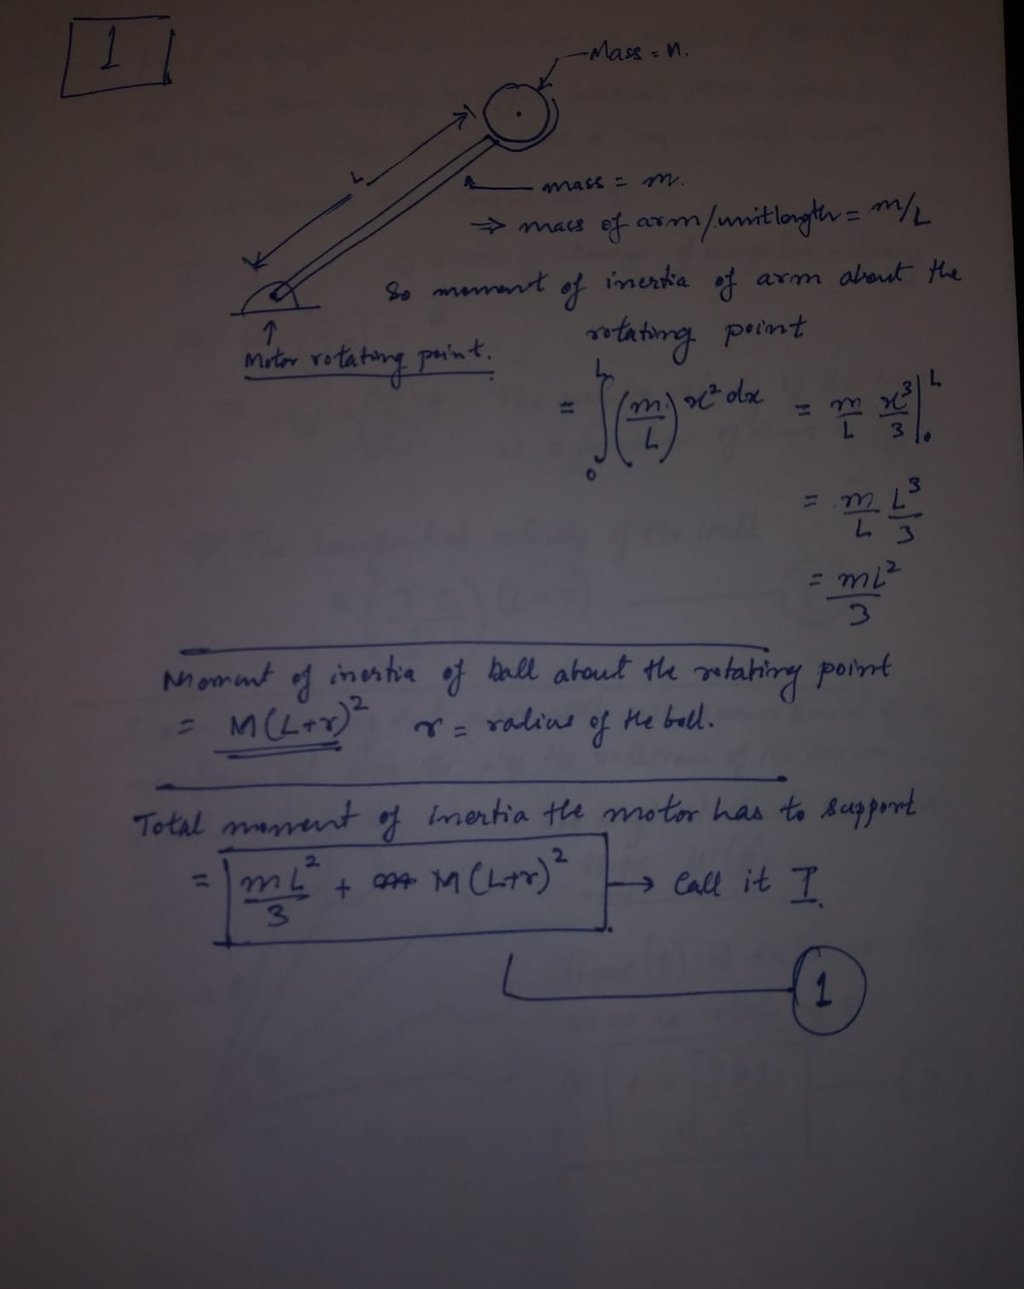 1
Mass = M.
L
mass = m.
⇒ mass of arm/unitlength = m/L
Motor rotating point.
So moment of inertia of arm about the
rotating point
= ∫₀ᴸ (m/L) x² dx = m/L x³/3 |₀ᴸ
= m/L L³/3
= mL²/3
Moment of inertia of ball about the rotating point
= M(L+r)² r = radius of the ball.
Total moment of inertia the motor has to support
= mL²/3 + M(L+r)² → Call it I.
1